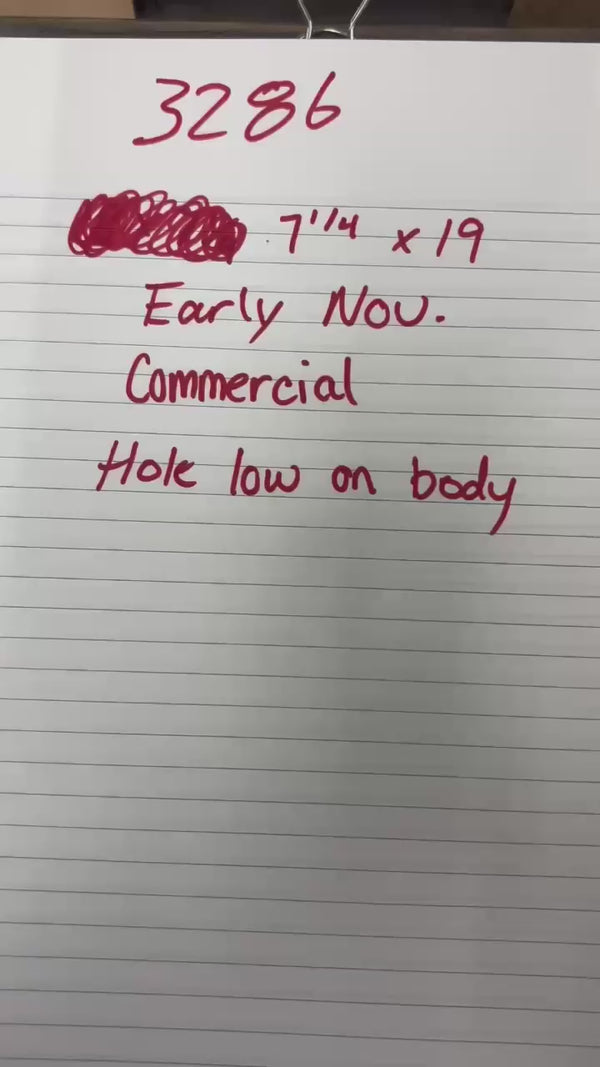 3286
7 1/4 x 19
Early Nov.
Commercial
Hole low on body